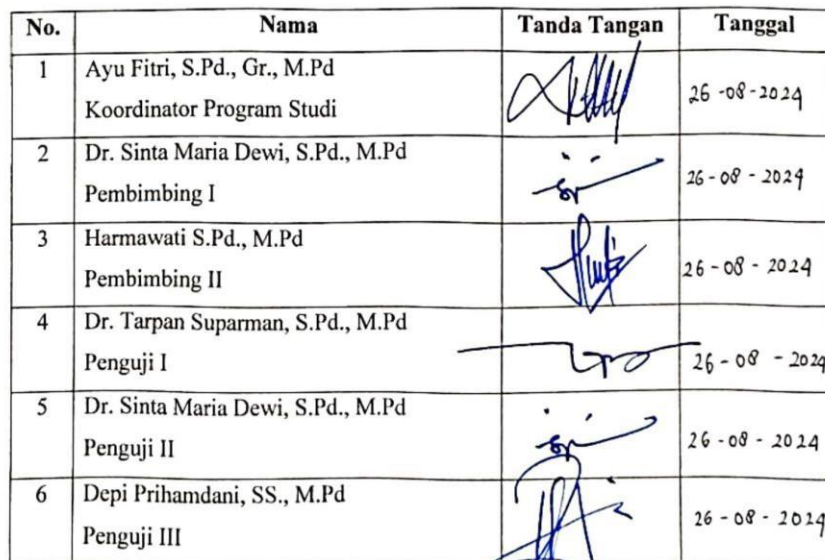 No. Nama Tanda Tangan Tanggal
1 Ayu Fitri, S.Pd., Gr., M.Pd
Koordinator Program Studi 26-08-2024
2 Dr. Sinta Maria Dewi, S.Pd., M.Pd
Pembimbing I 26-08-2024
3 Harmawati S.Pd., M.Pd
Pembimbing II 26-08-2024
4 Dr. Tarpan Suparman, S.Pd., M.Pd
Penguji I 26-08-2024
5 Dr. Sinta Maria Dewi, S.Pd., M.Pd
Penguji II 26-08-2024
6 Depi Prihamdani, SS., M.Pd
Penguji III 26-08-2024